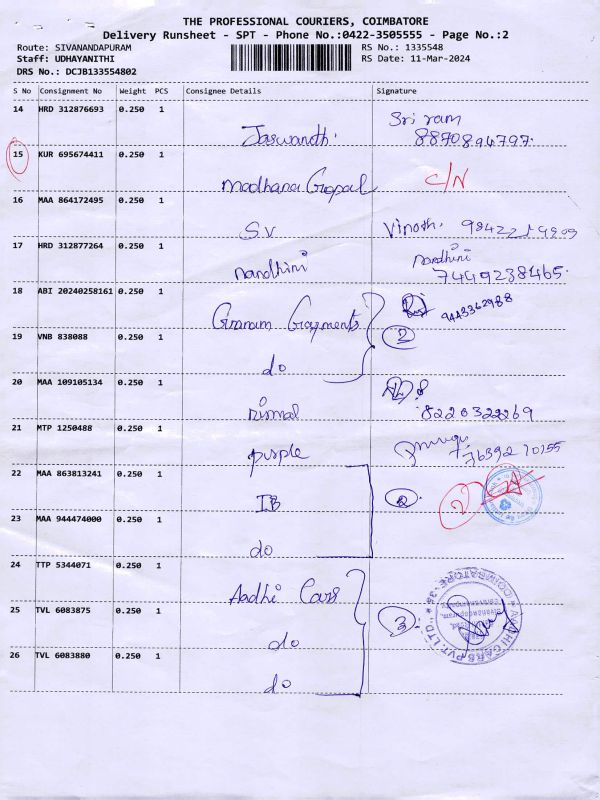 THE PROFESSIONAL COURIERS, COIMBATORE
Delivery Runsheet - SPT - Phone No.:0422-3505555 - Page No.:2
Route: SIVANANDAPURAM
RS No.: 1335548
Staff: UDHAYANITHI
RS Date: 11-Mar-2024
DRS No.: DCJB133554802
S No Consignment No Weight PCS Consignee Details Signature
14 HRD 312876693 0.250 1
Sri ram
Jaswandh.
8870894797.
15 KUR 695674411 0.250 1
Madhana Gopal
C/N
16 MAA 864172495 0.250 1
SV
Vinoth.
17 HRD 312877264 0.250 1
nandhini
Nandhini
7449238465.
18 ABI 20240258161 0.250 1
Gnanam Garments
9443362988
19 VNB 838088 0.250 1
do
2
20 MAA 109105134 0.250 1
nirmal
8220322269
21 MTP 1250488 0.250 1
purple
76392 70155
22 MAA 863813241 0.250 1
IB
2
2
23 MAA 944474000 0.250 1
do
24 TTP 5344071 0.250 1
Aadhi Cars
25 TVL 6083875 0.250 1
do
3
AADHI CARS PVT. LTD.
COIMBATORE-35
Sivanandapuram,
26 TVL 6083880 0.250 1
do